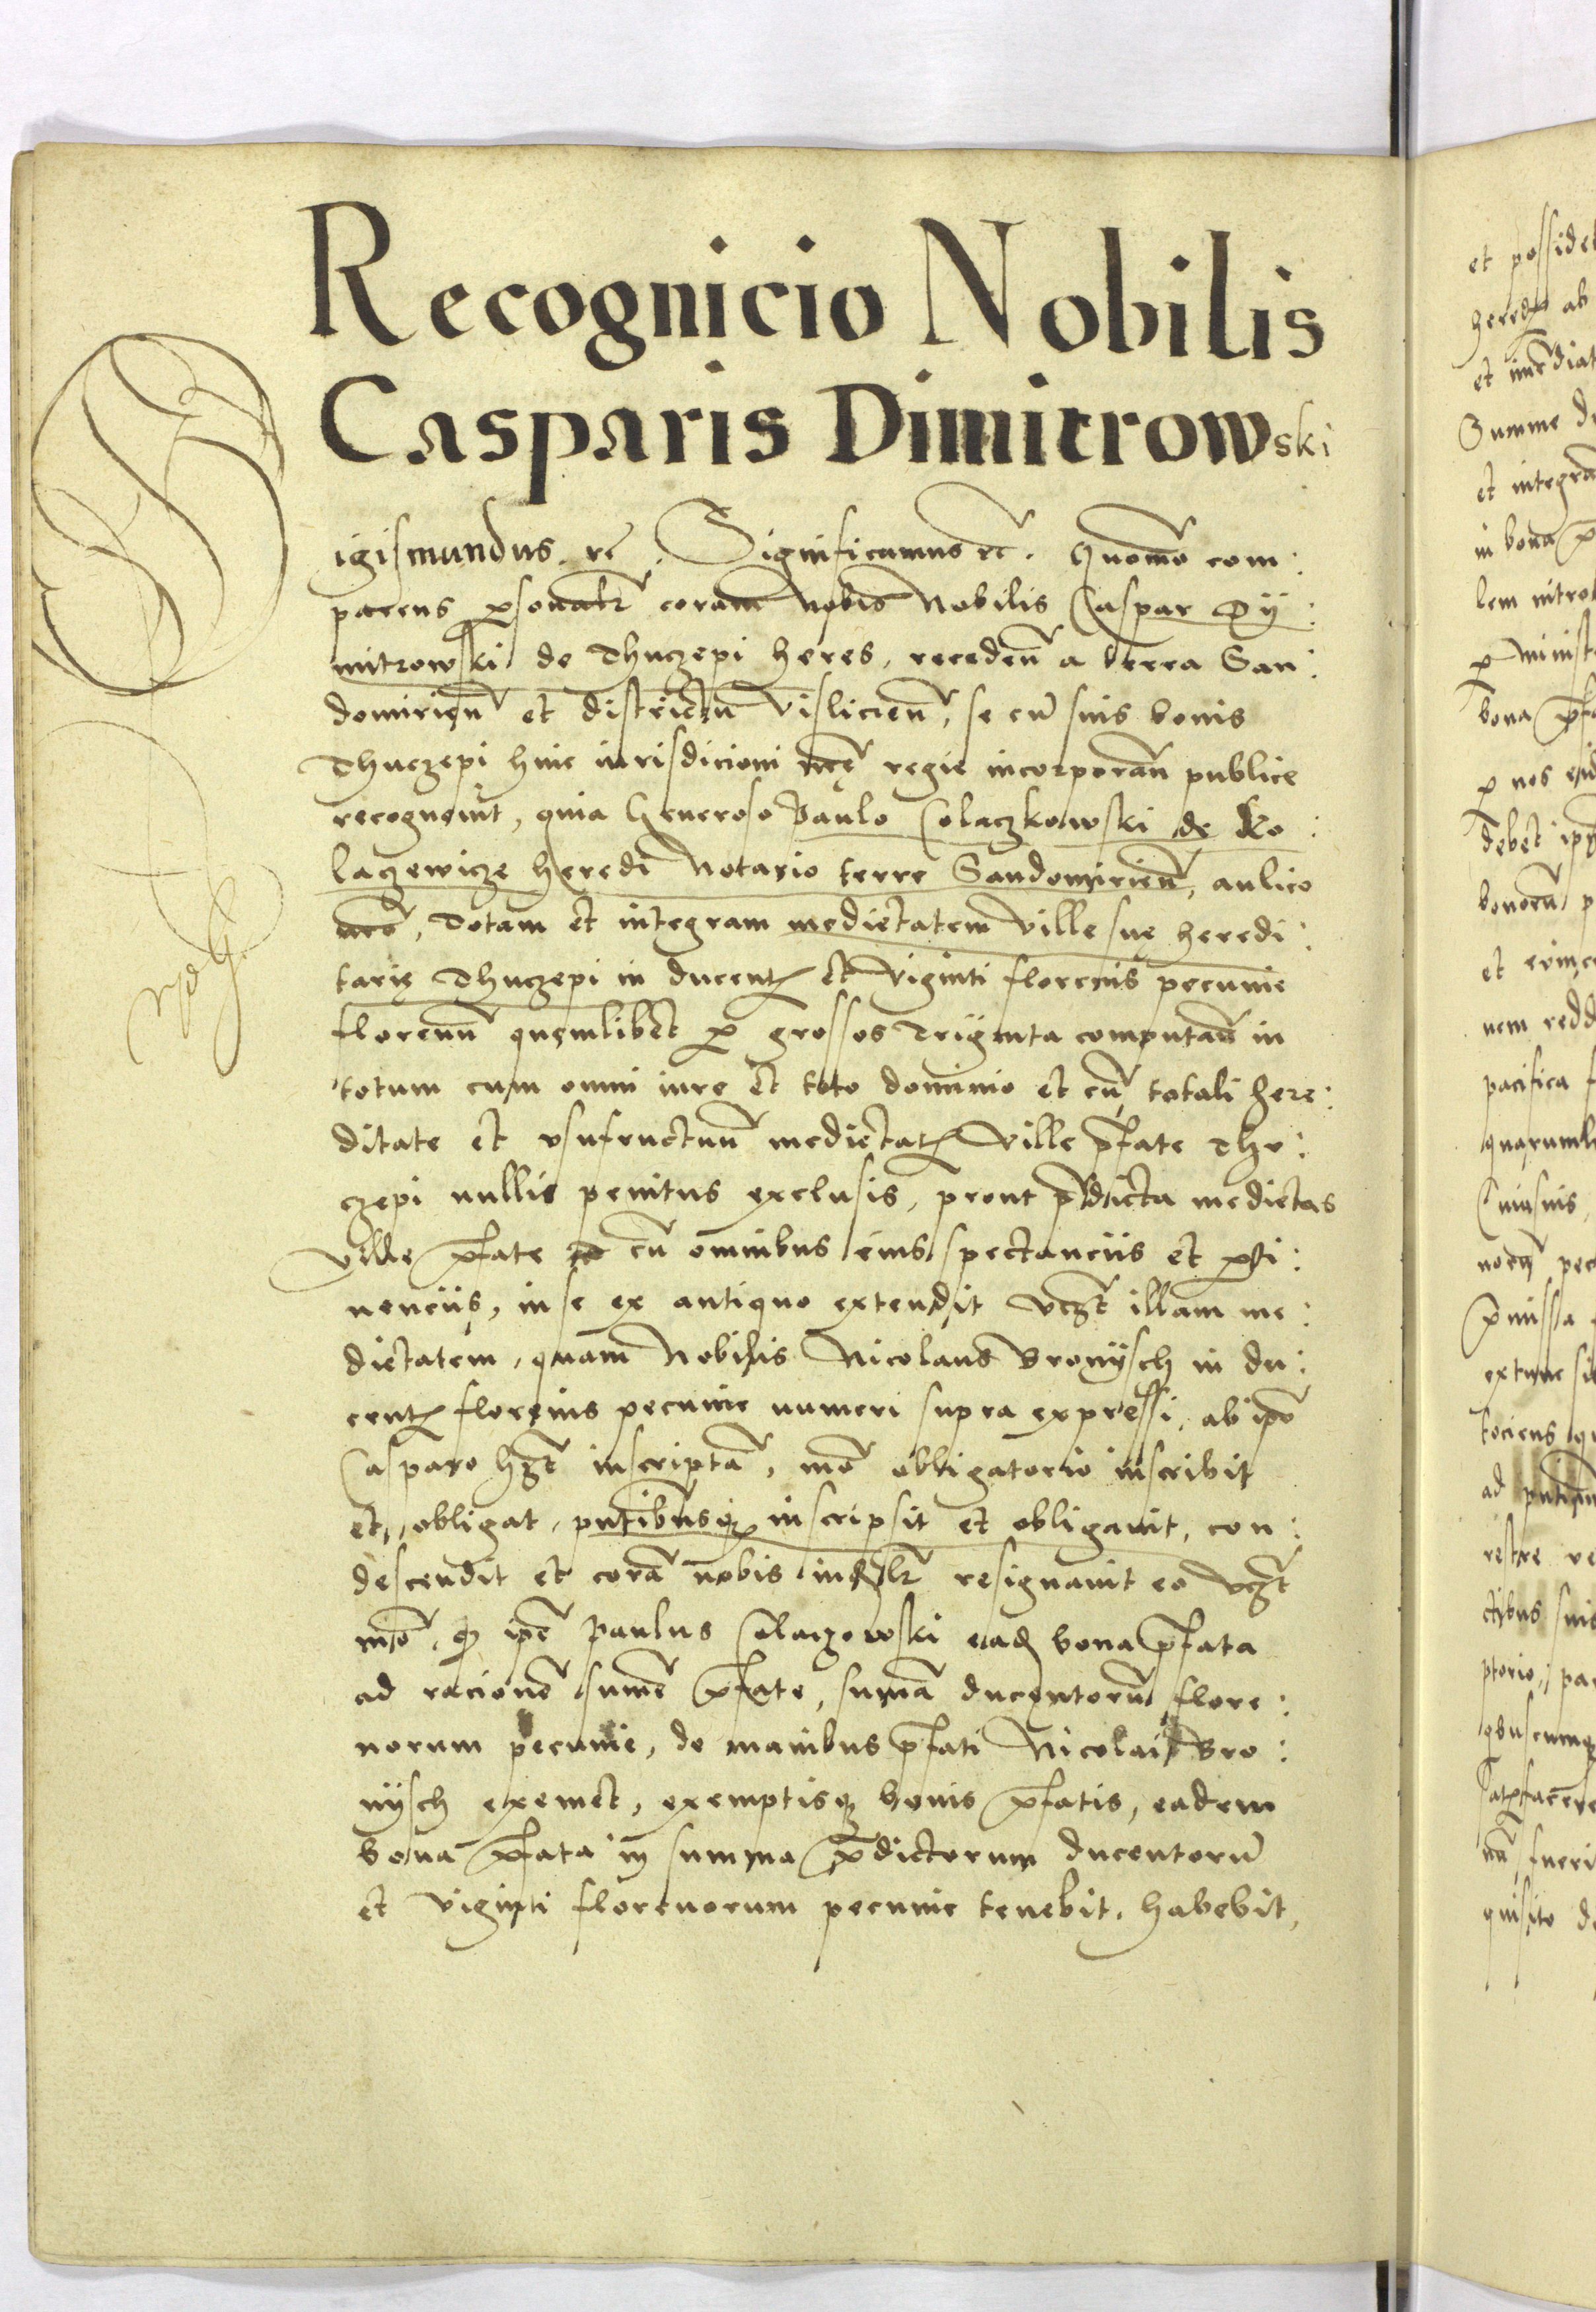 Recognicio Nobilis
Casparis Dimitrowski
Sigismundus rc̄. Significamus rc̄. Quomō com:
parens ꝑsonalr̄ coram Nobis Nobilis Caspar Dÿ:
mitrowski de Thuczepi heres, recedeñ a terra San:
domirieñ et districtu Vislicieñ, se cū suis bonis
Thuczepi huic iurisdicioni nrę regie incorporañ publice
recognovit, quia Generoso Paulo Colaczkowski de Ko:
laczewicze heredi Notario terre Sandomirieñ, aulico
nrō, Totam et integram medietatem ville suę heredi:
tarię Thuczepi in ducentꝭ et viginti florenis pecunie
florenū quemlibet ꝑ grossos Triginta computañ in
totum cum omni iure et toto dominio et cū totali here:
ditate et vsufructuū medietatꝭ ville p̄fate Thu:
czepi nullis penitus exclusis, prout p̄dicta medietas
ville p̄fate cū omnibus eius spectanciis et ꝑti:
nenciis, in se ex antiquo extendit vꝫt illam me:
dietatem, quam Nobilis Nicolaus Bronÿsch in du:
centꝭ florenis pecunie numeri supra expressi, ab ipō
Casparo hꝫt inscriptā, mō obligatorio inscribit
et obligat, pn̄tibusqꝫ inscripsit et obligavit, con:
descendit et corā nobis resignavit eo vꝫt
mō, qꝫ ipē Paulus Colaczowski eadꝭ bona p̄fata
ad racionē sumē p̄fate, sumā ducentorū flore:
norum pecunie, de manibus p̄fati Nicolai Bro:
nÿsch exemet, exemptisqꝫ bonis p̄fatis, eadem
bona p̄fata in summa p̄dictorum ducentorū
et viginti florenorum pecunie tenebit, habebit,
et posside
hered ab
et imēdiat
Summe d
et integra
in bona
lem intro
ꝑ minist
bona p̄f
ꝑ nos eid
debet ip
bonorū p
et evinc
nem redd
pacifica f
quarumli
Cuiusvis
norū pec
p̄missa
extunc si
tociens qu
ad
restre
ctibus suis
ptorio, pa
qbuscumqꝫ
satꝭfacere
nū, fueri
quisito d